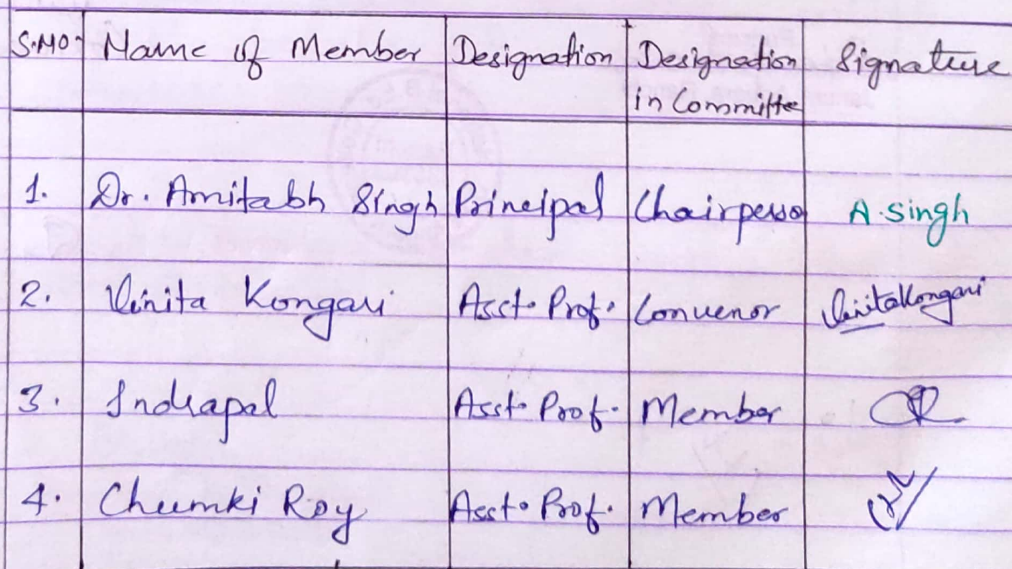 S.NO. Name of Member Designation Designation in Committe Signature
1. Dr. Amitabh Singh Principal Chairperso A.singh
2. Vinita Kongari Asst. Prof. Convenor Vinita Kongari
3. Indrapal Asst. Prof. Member
4. Chumki Roy Asst. Prof. Member